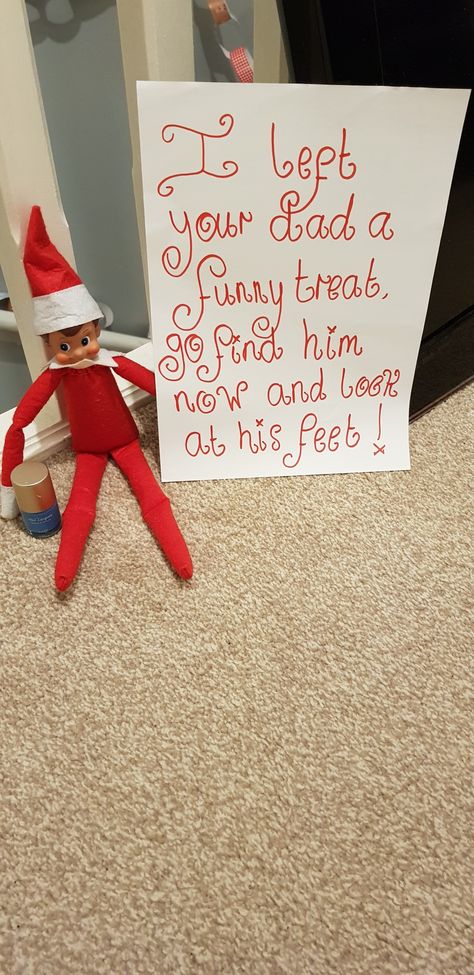 I left
your dad a
funny treat,
go find him
now and look
at his feet!
x